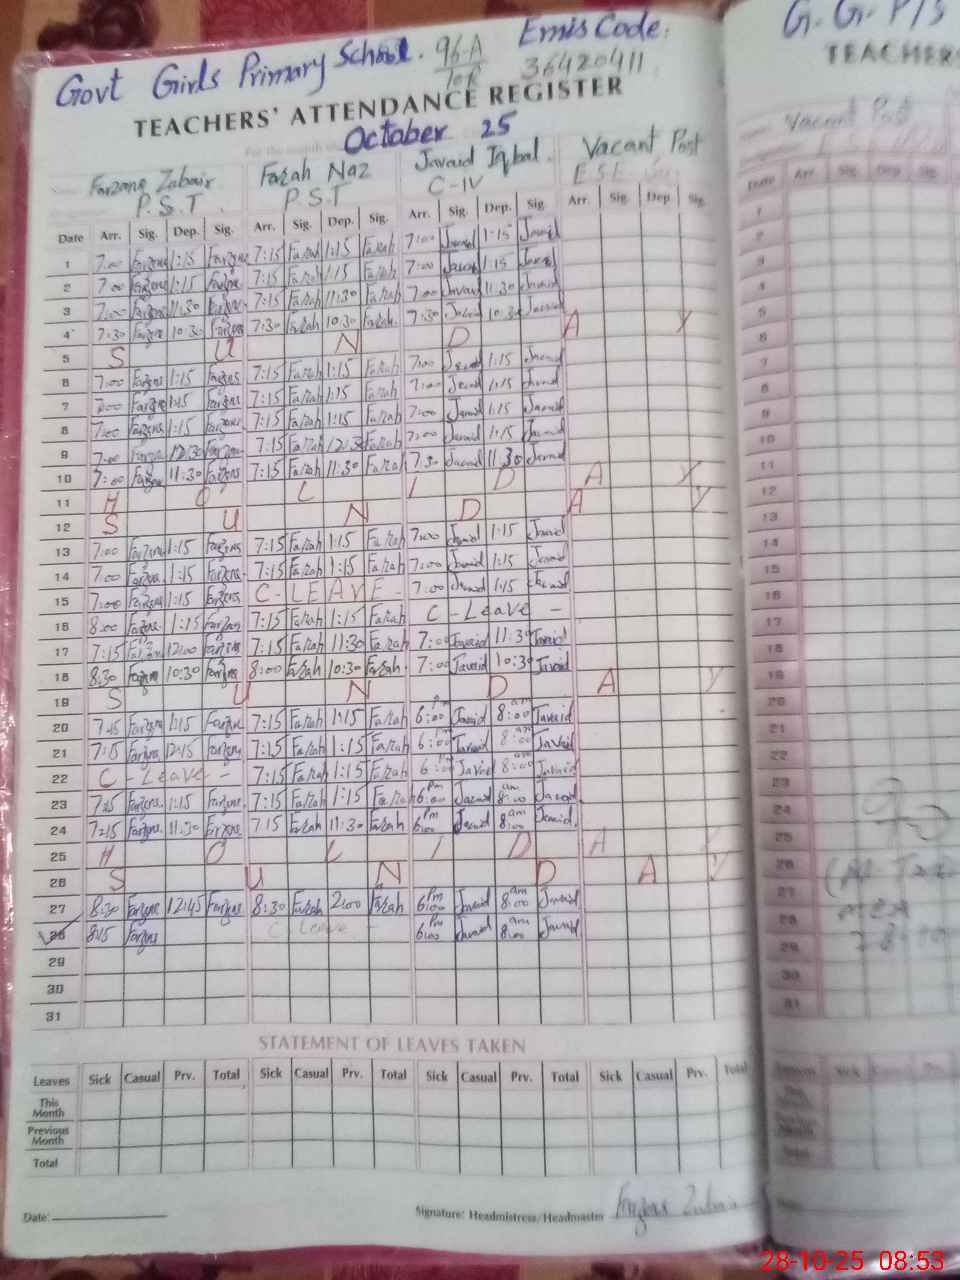 Govt Girls Primary School. 96-A/10R Emis Code: 36420411
TEACHERS' ATTENDANCE REGISTER
October 25
Farzana Zubair Farah Naz Javaid Iqbal. Vacant Post
P.S.T. P.S.T C-IV E S E
Date Arr. Sig. Dep. Sig. Arr. Sig. Dep. Sig. Arr. Sig. Dep. Sig. Arr. Sig. Dep. Sig.
1 7:00 Farzana 1:15 Farzana 7:15 Farah 1:15 Farah 7:00 Javaid 1:15 Javaid
2 7:00 Farzana 1:15 Farzana 7:15 Farah 1:15 Farah 7:00 Javaid 1:15 Javaid
3 7:00 Farzana 11:30 Farzana 7:15 Farah 11:30 Farah 7:00 Javaid 11:30 Javaid
4 7:30 Farzana 10:30 Farzana 7:30 Farah 10:30 Farah. 7:30 Javaid 10:30 Javaid
5 S U N D A Y
6 7:00 Farzana 1:15 Farzana 7:15 Farah 1:15 Farah 7:00 Javaid 1:15 Javaid
7 7:00 Farzana 1:15 Farzana 7:15 Farah 1:15 Farah 7:00 Javaid 1:15 Javaid
8 7:00 Farzana 1:15 Farzana 7:15 Farah 1:15 Farah 7:00 Javaid 1:15 Javaid
9 7:00 Farzana 12:30 Farzana 7:15 Farah 12:30 Farah 7:00 Javaid 1:15 Javaid
10 7:00 Farzana 11:30 Farzana 7:15 Farah 11:30 Farah 7:30 Javaid 11:30 Javaid
11 H O L I D A Y
12 S U N D A Y
13 7:00 Farzana 1:15 Farzana 7:15 Farah 1:15 Farah 7:00 Javaid 1:15 Javaid
14 7:00 Farzana 1:15 Farzana. 7:15 Farah 1:15 Farah 7:00 Javaid 1:15 Javaid
15 7:00 Farzana 1:15 Farzana C-LEAVE - 7:00 Javaid 1:15 Javaid
16 8:00 Farzana 1:15 Farzana 7:15 Farah 1:15 Farah C - Leave -
17 7:15 Farzana 12:00 Farzana 7:15 Farah 11:30 Farah 7:00 Javaid 11:30 Javaid
18 8:30 Farzana 10:30 Farzana 8:00 Farah 10:30 Farah. 7:00 Javaid 10:30 Javaid
19 S U N D A Y
20 7:15 Farzana 1:15 Farzana 7:15 Farah 1:15 Farah 6:00 pm Javaid 8:00 am Javaid
21 7:15 Farzana 12:15 Farzana 7:15 Farah 1:15 Farah 6:00 pm Javaid 8:00 am Javaid
22 C - Leave - 7:15 Farah 1:15 Farah 6:00 pm Javaid 8:00 am Javaid
23 7:15 Farzana. 1:15 Farzana. 7:15 Farah 1:15 Farah 6:00 pm Javaid 8:00 am Javaid
24 7:15 Farzana. 11:30 Farzana 7:15 Farah 11:30 Farah 6:00 pm Javaid 8:00 am Javaid.
25 H O L I D A Y
26 S U N D A Y
27 8:30 Farzana 12:45 Farzana 8:30 Farah 2:00 Farah 6:00 pm Javaid 8:00 am Javaid
28 8:15 Farzana C Leave - 6:00 pm Javaid 8:00 am Javaid
29
30
31
STATEMENT OF LEAVES TAKEN
Leaves Sick Casual Prv. Total Sick Casual Prv. Total Sick Casual Prv. Total Sick Casual Prv. Total
This Month
Previous Month
Total
Date: Signature: Headmistress/Headmaster Farzana Zubair
G. G. P/S
TEACHERS
Vacant Post
Date Arr. Sig. Dep. Sig.
28-10-25 08:53